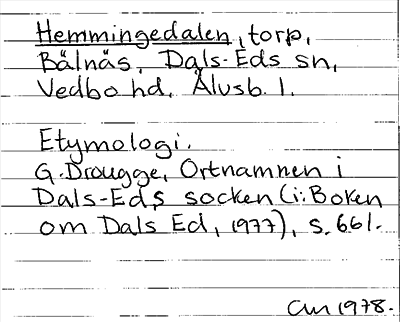 Hemmingedalen, torp,
Bälnäs, Dals-Eds sn,
Vedbo hd, Älvsb. l.
Etymologi.
G. Drougge, Ortnamnen i
Dals-Eds socken (i: Boken
om Dals Ed, 1977), s. 661.
1978.